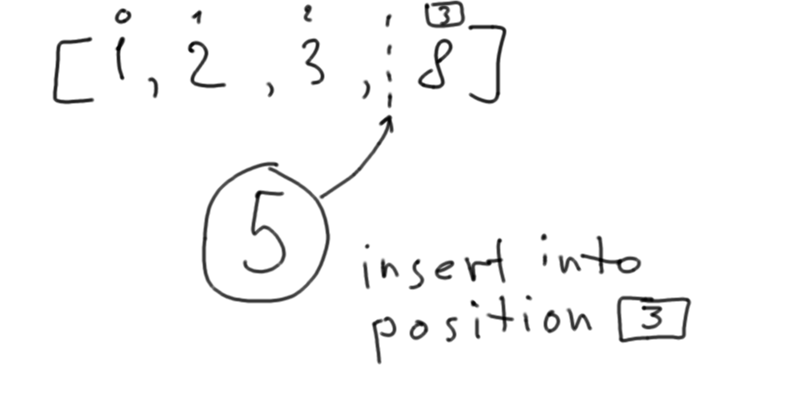 0 1 2 3
[1, 2, 3, 8]
5
insert into
position 3